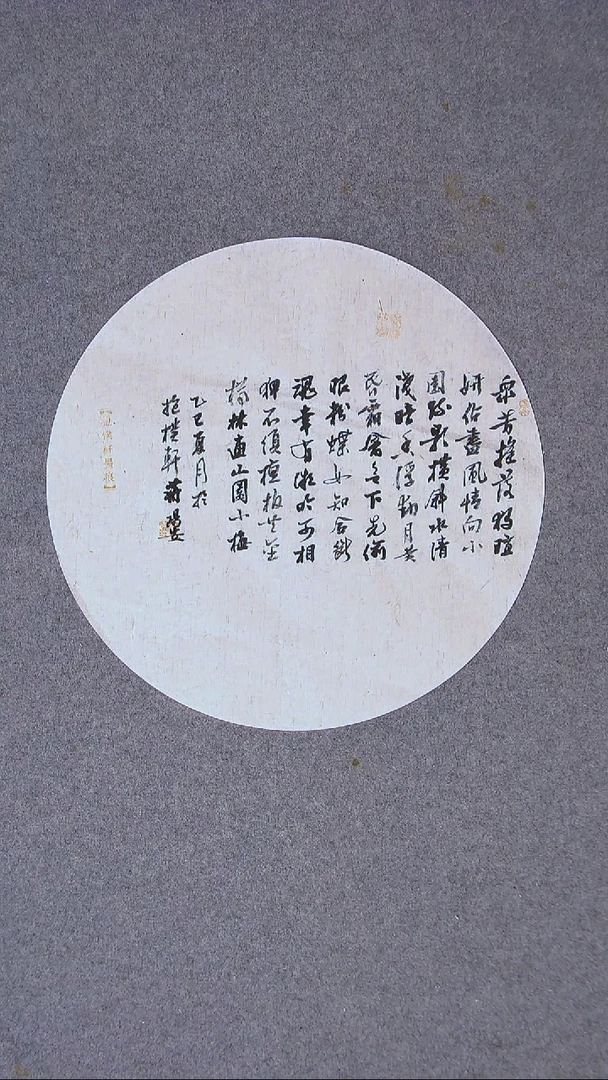 衆芳搖落獨暄
妍佔盡風情向小
園疏影橫斜水清
淺暗香浮動月黃
昏霜禽欲下先偷
眼粉蝶如知合斷
魂幸有微吟可相
狎不須檀板共金
樽林逋山園小梅
乙巳夏月於
抱樸軒蔣